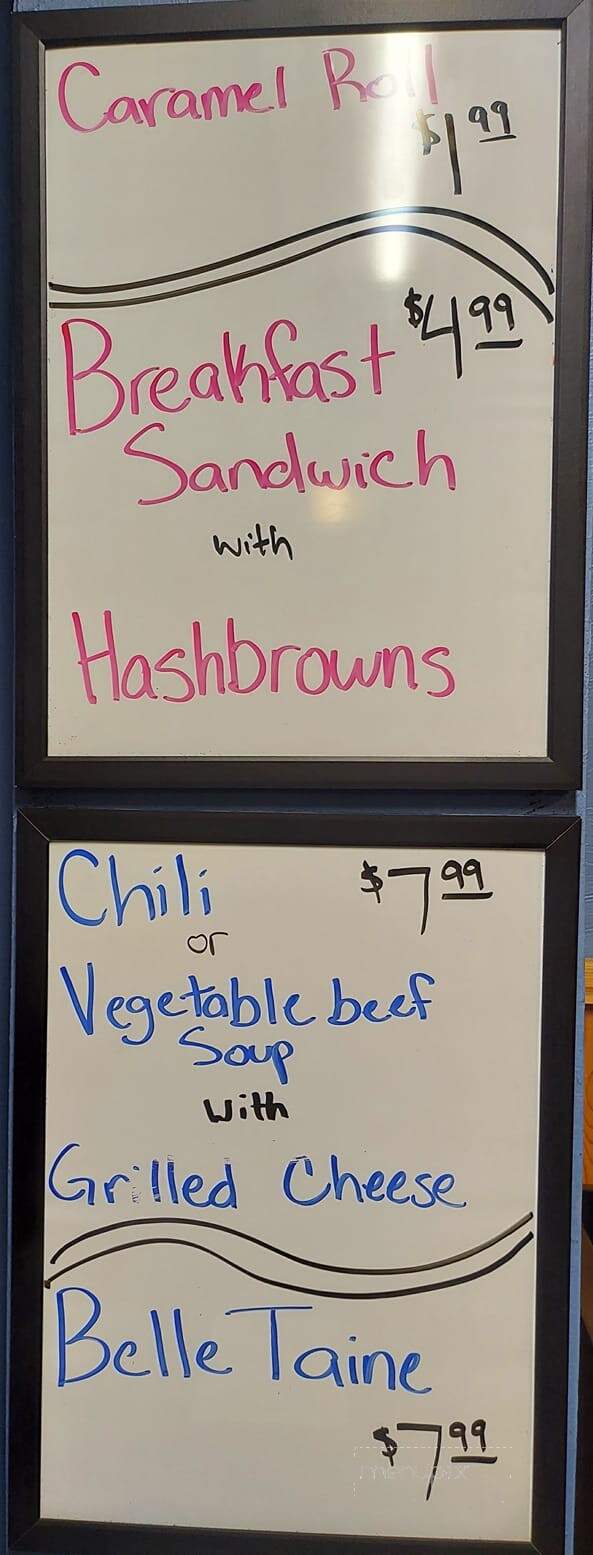 Caramel Roll
$1 99
$4 99
Breakfast
Sandwich
with
Hashbrowns
Chili $7 99
or
Vegetable beef
Soup
with
Grilled Cheese
Belle Taine
$7 99